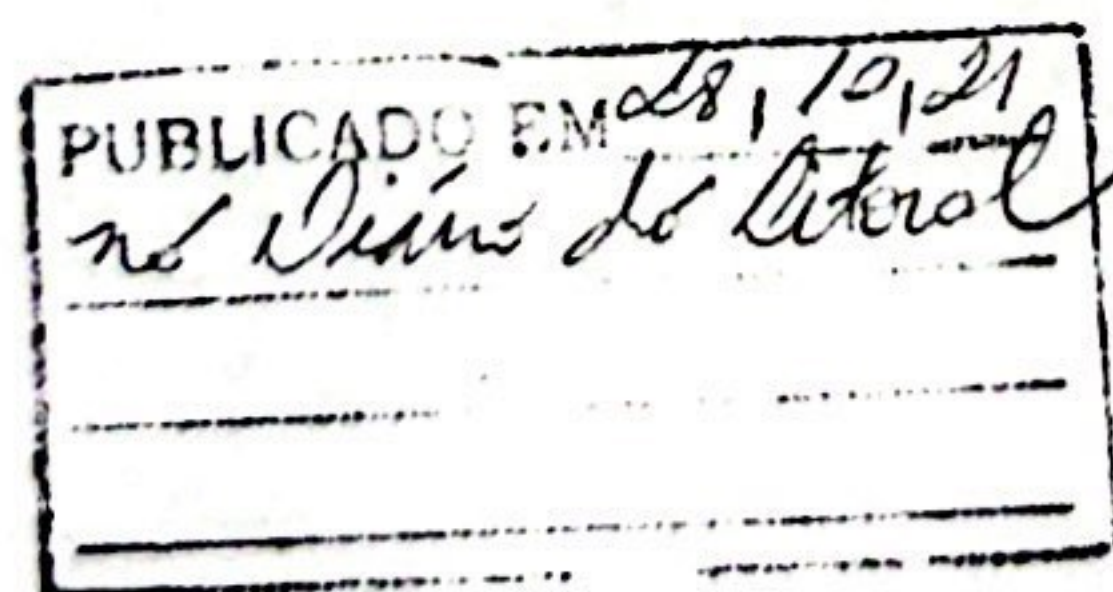 PUBLICADO EM 28, 10, 21
no Diário do Litoral